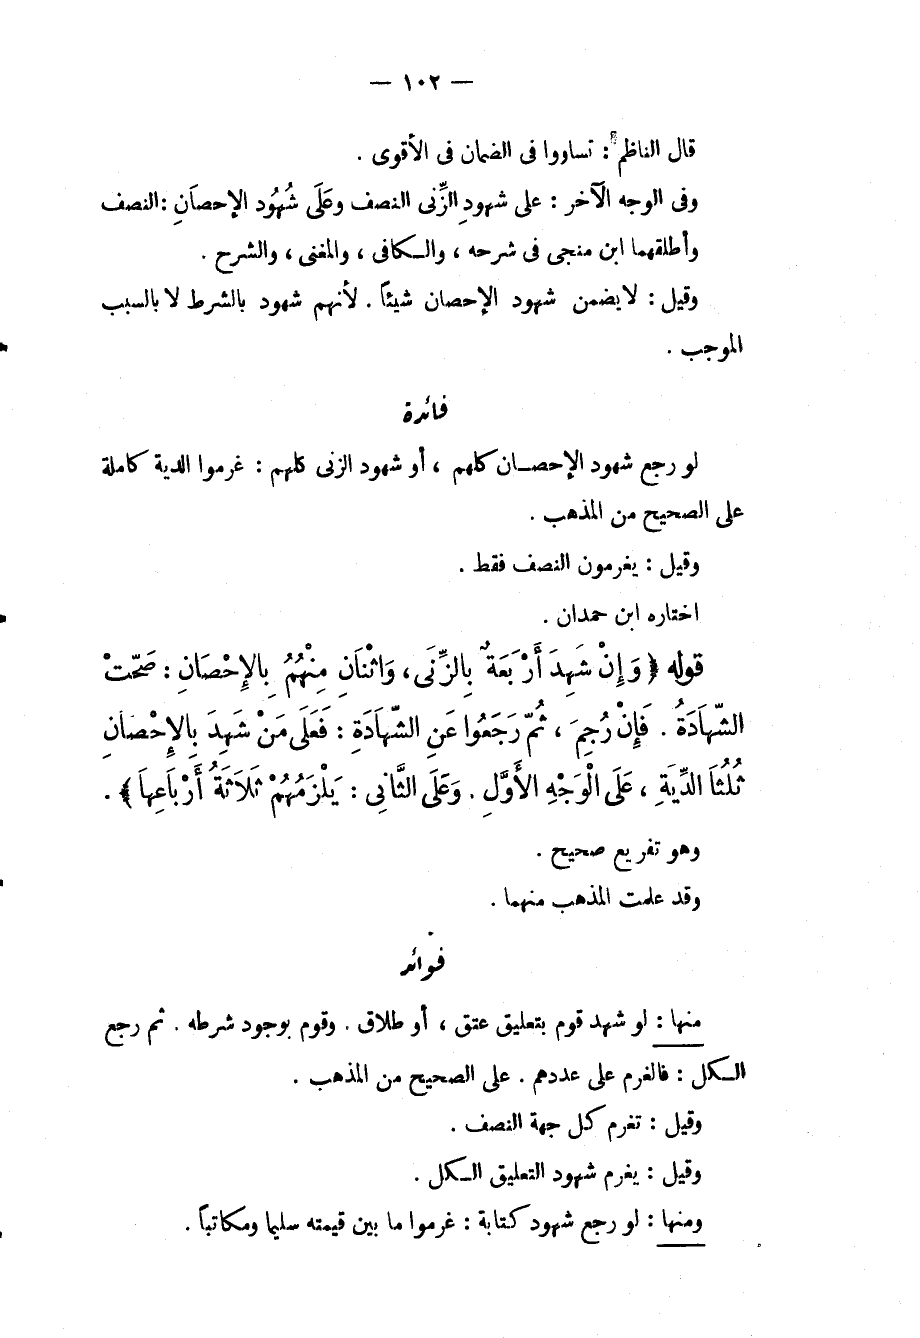 — ١٠٢ —
قال الناظم : تساووا فى الضمان فى الأقوى .
وفى الوجه الآخر : على شهودِ الزِّنى النصف وعَلَى شُهُود الإحصَانِ : النصف
وأطلقهما ابن منجى فى شرحه ، والكافى ، والمغنى ، والشرح .
وقيل : لا يضمن شهود الإحصان شيئاً . لأنهم شهود بالشرط لا بالسبب
الموجب .
فائدة
لو رجع شهود الإحصان كلهم ، أو شهود الزنى كلهم : غرموا الدية كاملة
على الصحيح من المذهب .
وقيل : يغرمون النصف فقط .
اختاره ابن حمدان .
قوله ﴿ وَإِنْ شَهِدَ أَرْبَعَةٌ بِالزِّنَى ، وَاثْنَانِ مِنْهُمْ بِالإِحْصَانِ : صَحَّتْ
الشَّهَادَةُ . فَإِنْ رُجِمَ ، ثُمَّ رَجَعُوا عَنِ الشَّهَادَةِ : فَعَلَى مَنْ شَهِدَ بِالإِحْصَانِ
ثُلُثَا الدِّيَةِ ، عَلَى الْوَجْهِ الأَوَّلِ . وَعَلَى الثَّانِى : يَلْزَمُهُمْ ثَلَاثَةُ أَرْبَاعِهَا ﴾ .
وهو تفريع صحيح .
وقد علمت المذهب منهما .
فوائد
منها : لو شهد قوم بتعليق عتق ، أو طلاق . وقوم بوجود شرطه . ثم رجع
الكل : فالغرم على عددهم . على الصحيح من المذهب .
وقيل : تغرم كل جهة النصف .
وقيل : يغرم شهود التعليق الكل .
ومنها : لو رجع شهود كتابة : غرموا ما بين قيمته سليما ومكاتباً .